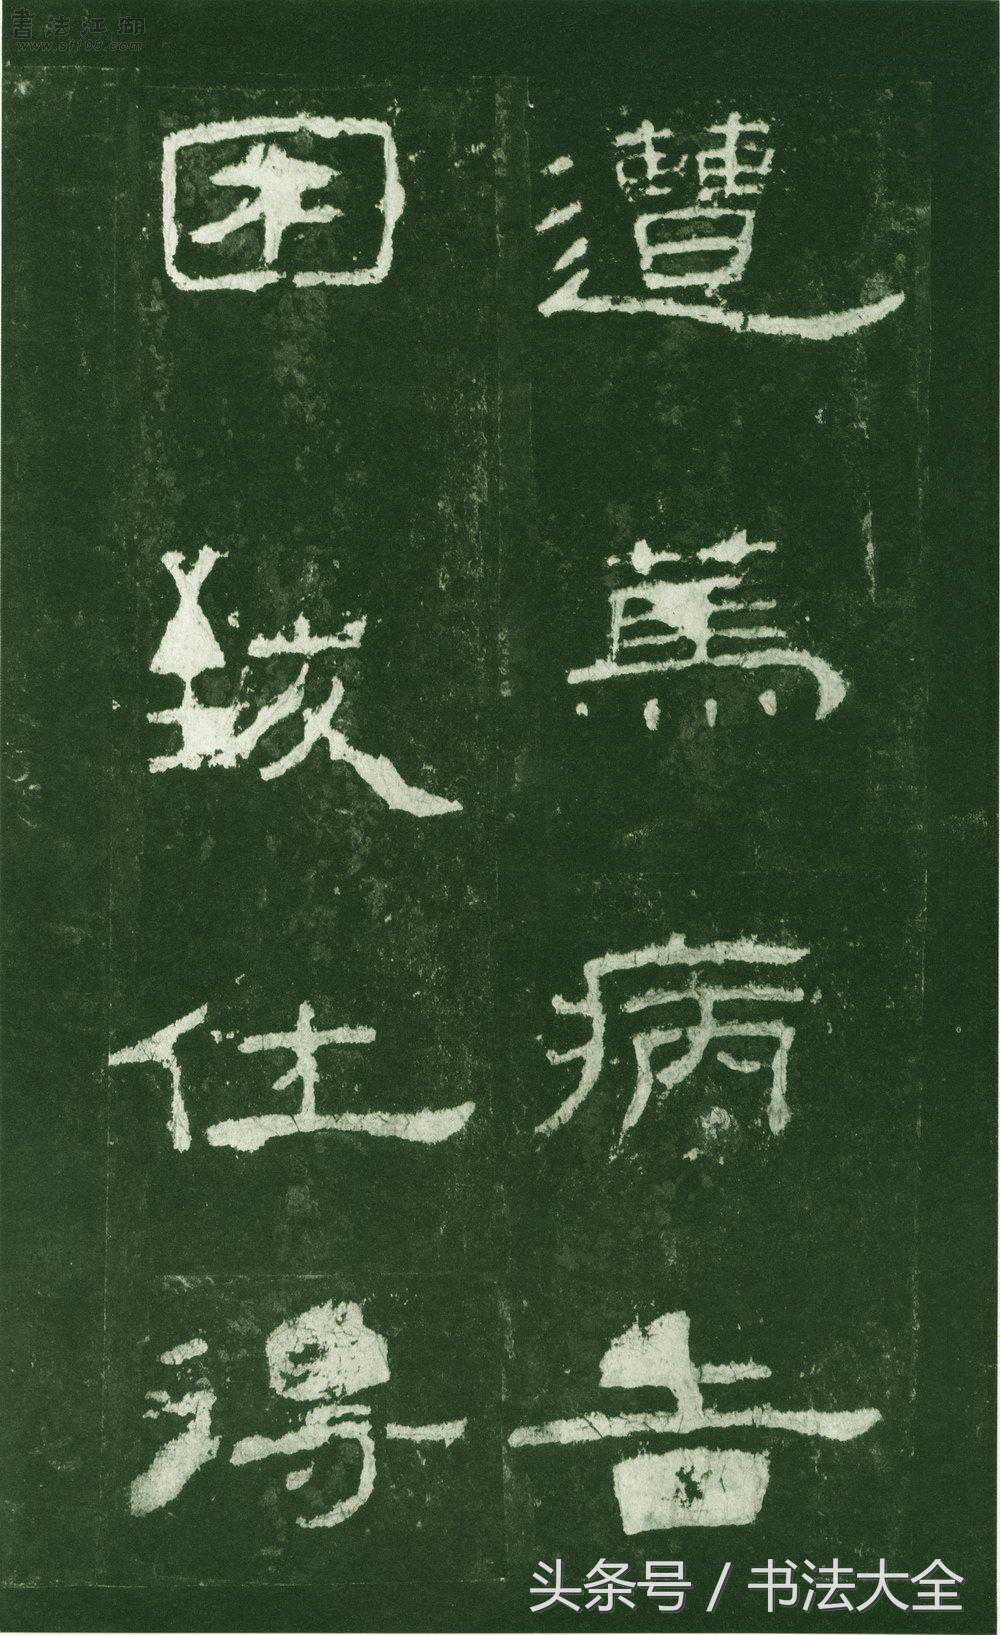 書法江湖
www.sf108.com
遭篤病告
困致仕得
头条号 / 书法大全